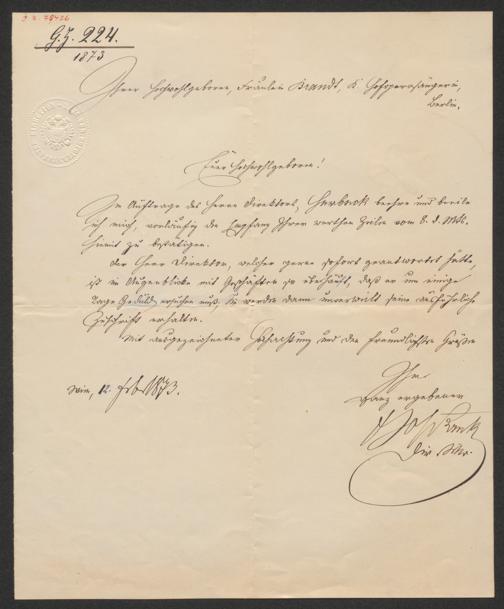 G.Z. 224.
1873
Ihrer Hochwohlgeboren, Fräulein Brandt, K. Hofopernsängerin,
Berlin.
Euer Hochwohlgeboren!
Im Auftrage des Herrn Direktors, Herbeck beehre und beeile
ich mich, vorläufig den Empfang Ihrer werthen Zeilen vom 8. d. Mts.
hiemit zu bestätigen.
Der Herr Direktor, welcher gerne sofort geantwortet hätte,
ist im Augenblicke mit Geschäften so überhäuft, daß er um einige
Tage Geduld ersuchen muß, Sie werden dann unverweilt seine ausführliche
Zuschrift erhalten.
Mit ausgezeichneter Hochachtung und den freundlichsten Grüßen
Ihr
ganz ergebener
Dir. Sekr.
Wien, 12. Feb. 1873.